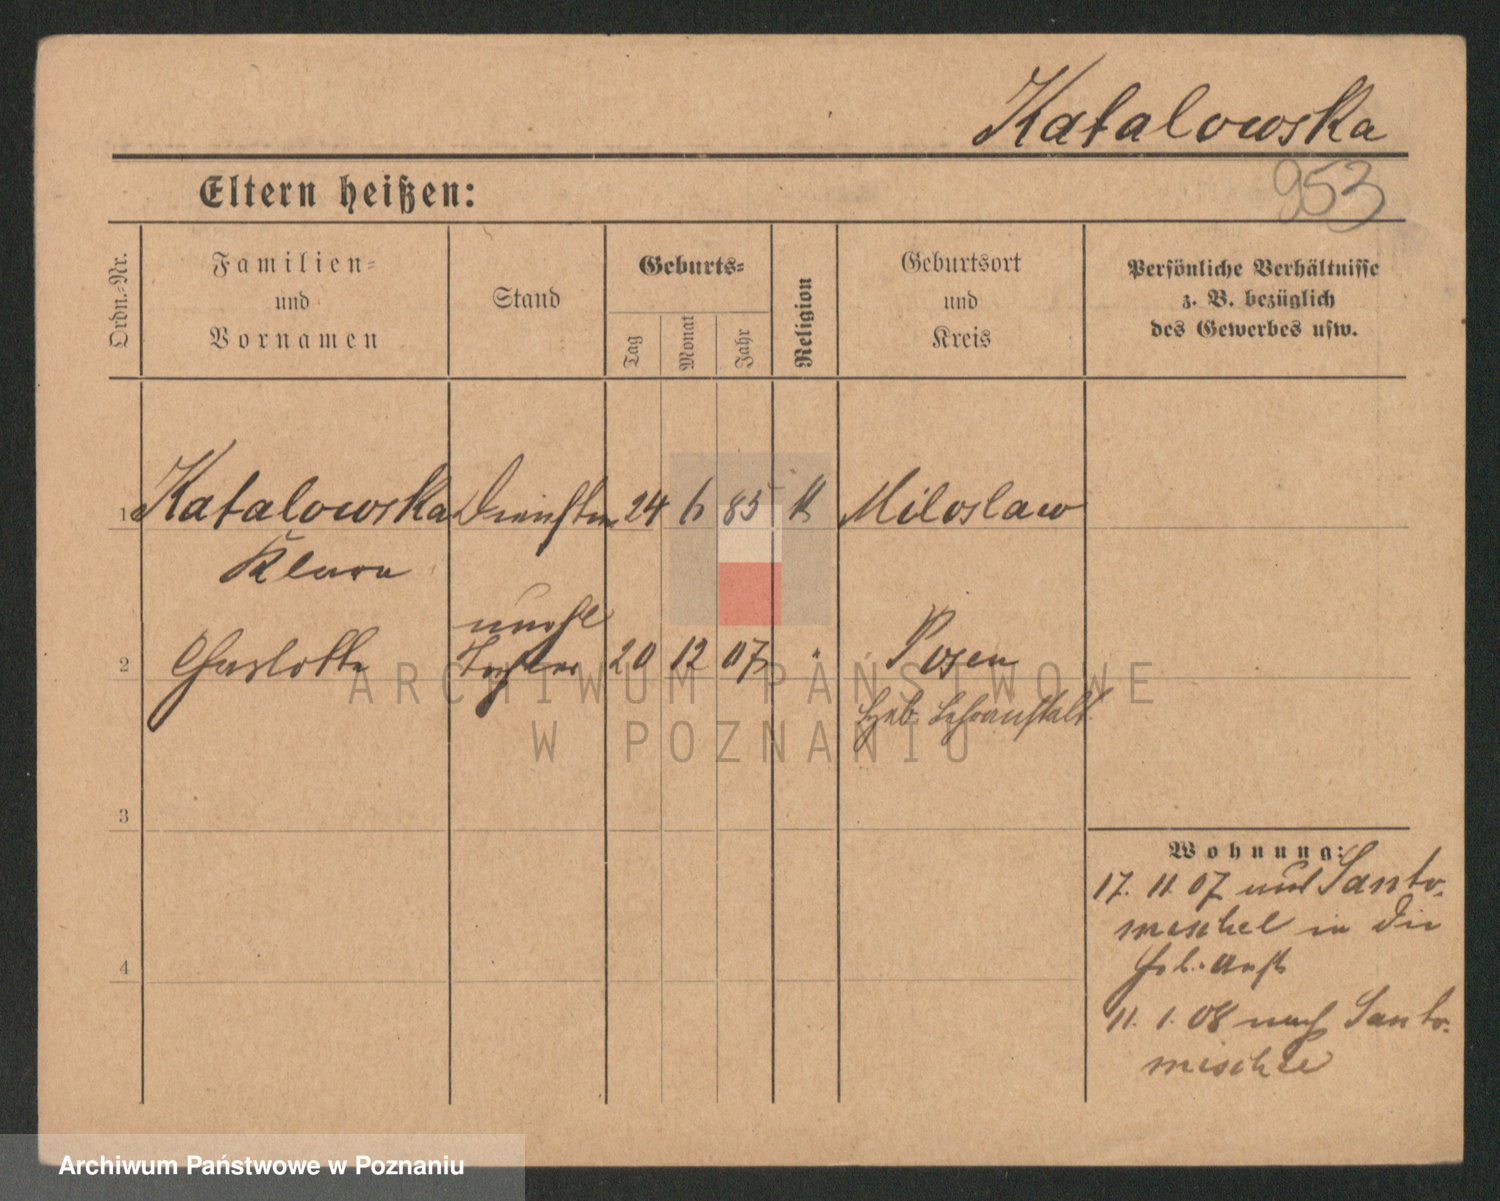 Katalowska
953
Eltern heißen:
Ordn.-Nr.
Familien-
und
Vornamen
Stand
Geburts-
Tag
Monat
Jahr
Religion
Geburtsort
und
Kreis
Persönliche Verhältnisse
z. B. bezüglich
des Gewerbes usw.
1 Katalowska 24 6 85 k Miloslaw
Klara
unehl
2 Charlotte Tochter 20 12 07 " Posen
Heb. Lehranstalt.
3
4
Wohnung:
17. 11. 07 aus Santo-
mischel in die
Heb. Anst
11. 1. 08 nach Santo-
mischel
ARCHIWUM PAŃSTWOWE
W POZNANIU
Archiwum Państwowe w Poznaniu